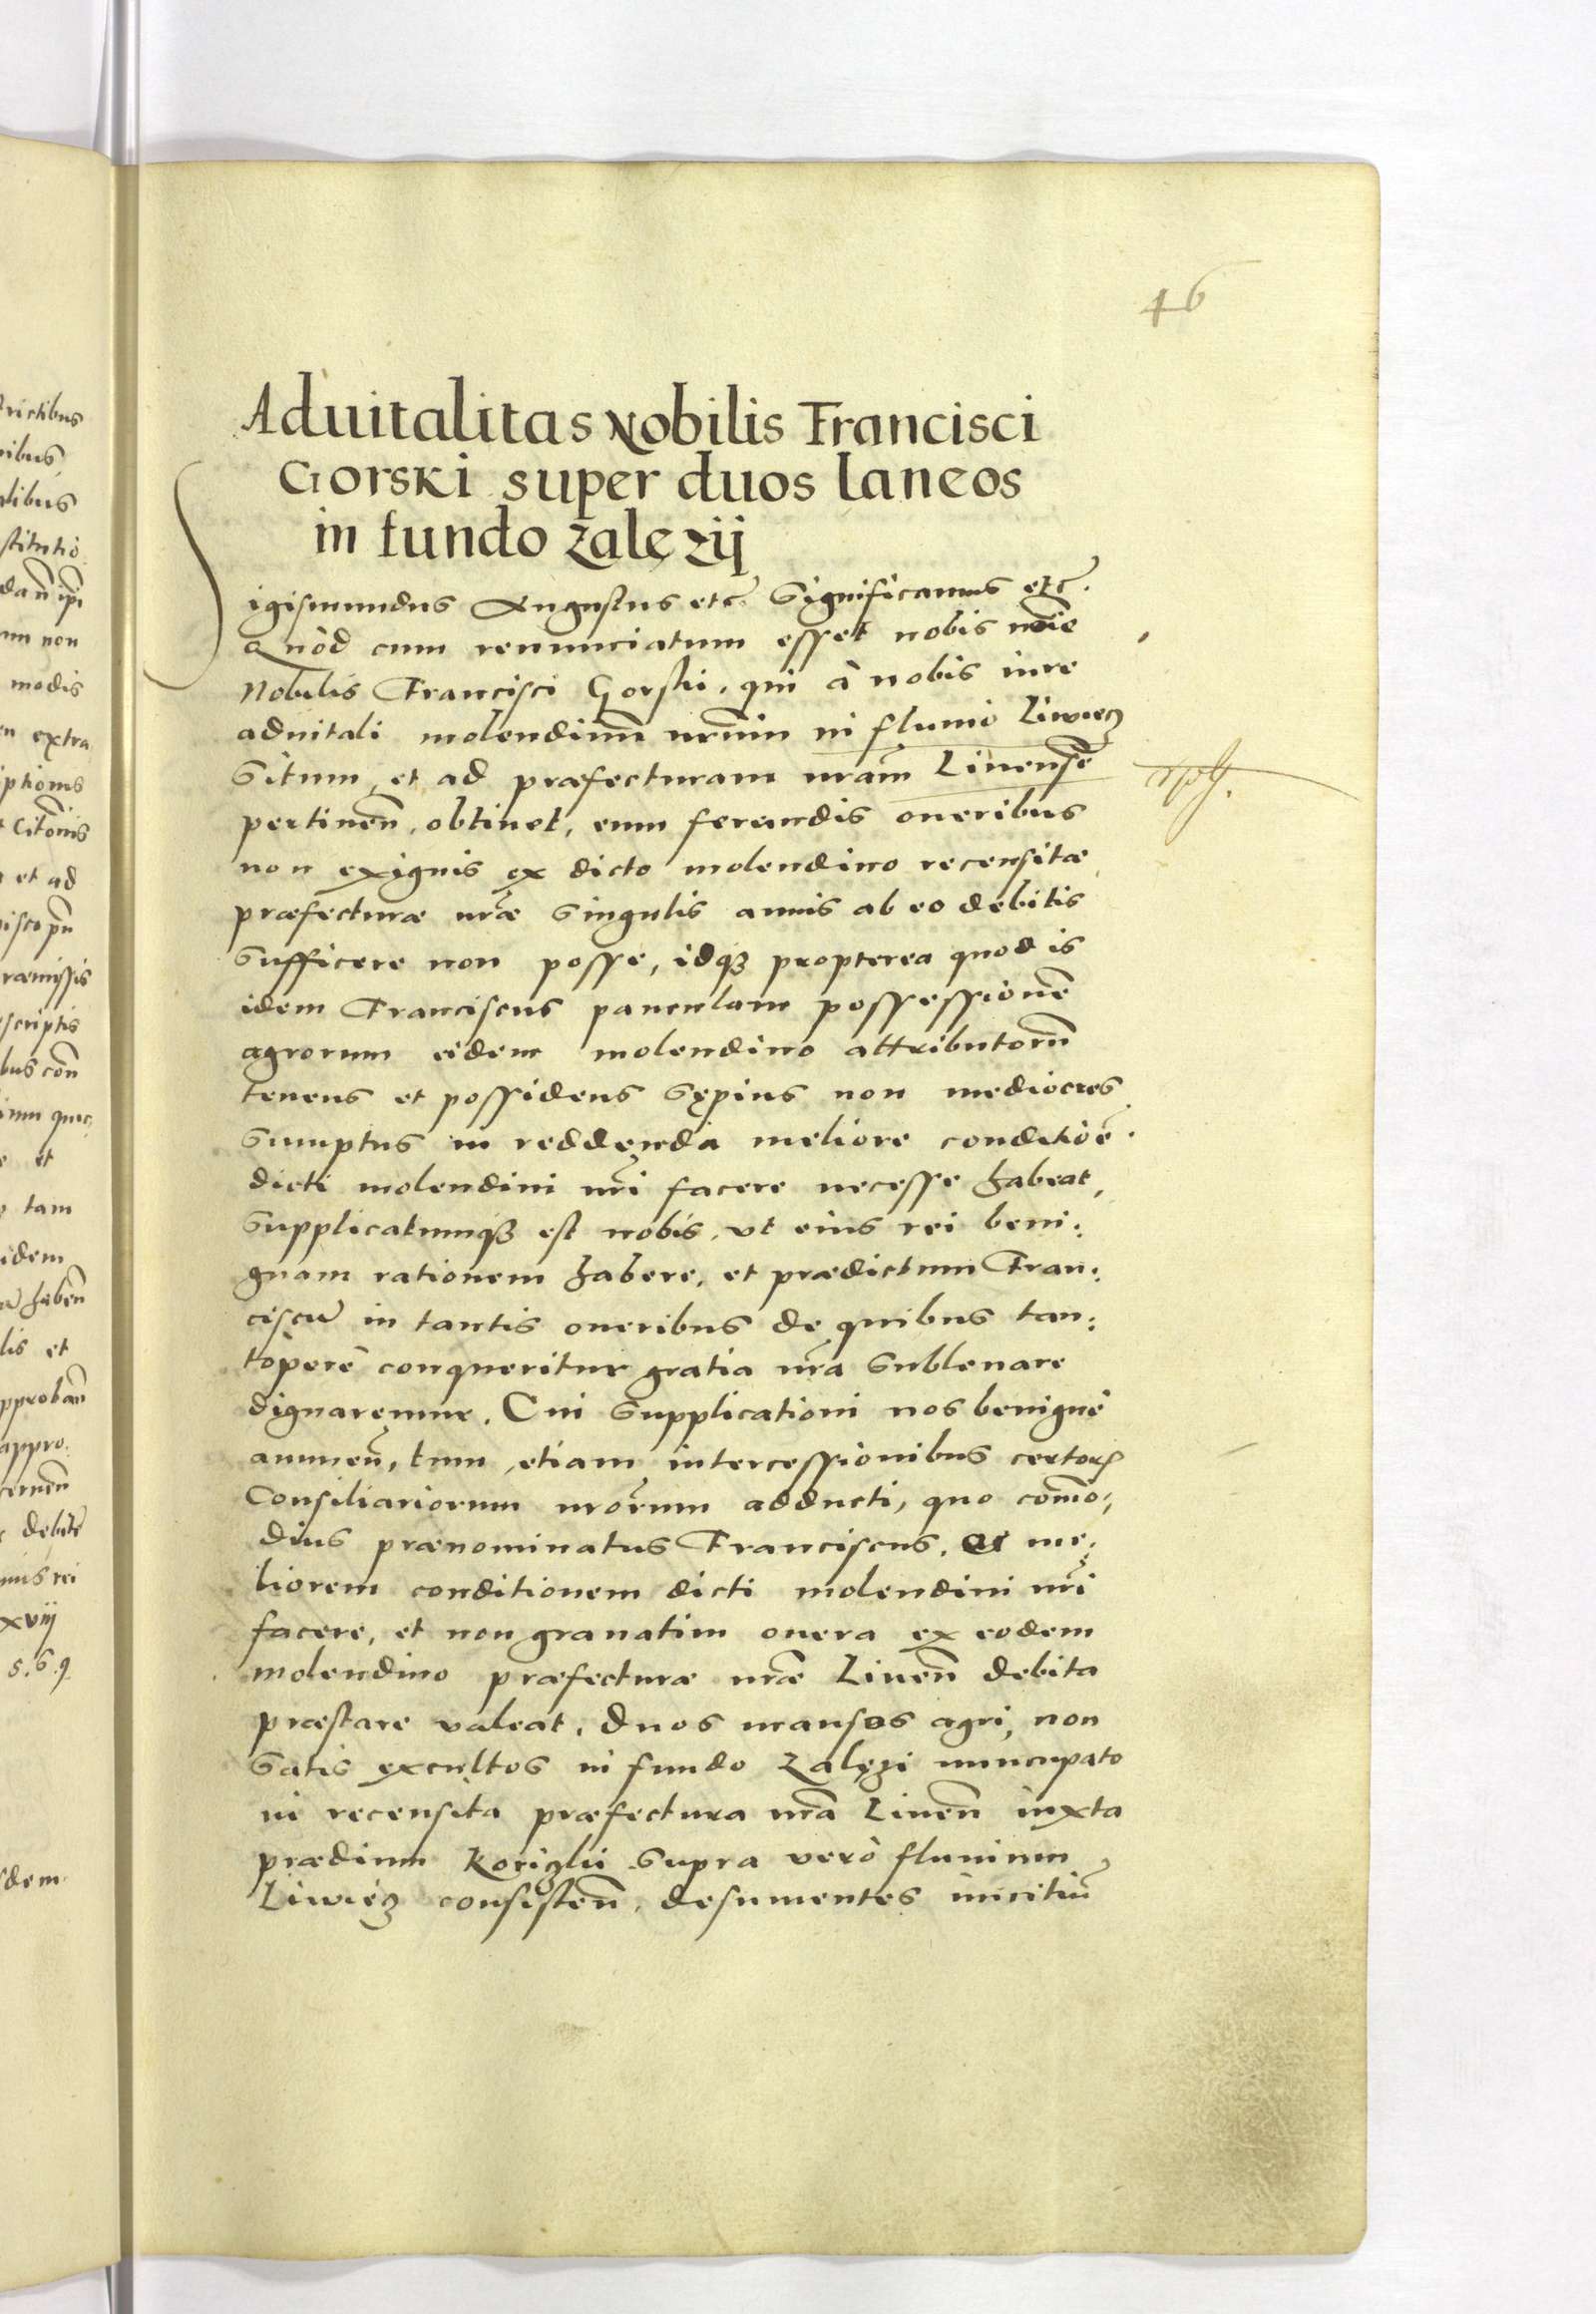 46
Aduitalitas Nobilis Francisci
Gorski super duos laneos
in fundo Zalęzij
Sigismundus Augustus etc̃. Significamus etc̃.
Quòd cum renunciatum esset nobis noĩe
Nobilis Francisci Gorski, qui à nobis iure
aduitali molendinũ nr̃um in fluuio Liwiecz
situm, et ad præfecturam nr̃am Liuensẽ
pertineñ, obtinet, eum ferendis oneribus
non exiguis ex dicto molendino recensitæ
præfecturæ nr̃æ singulis annis ab eo debitis
sufficere non posse, idqꝫ propterea quod is
idem Franciscus pauculam possessionẽ
agrorum eidem molendino attributorũ
tenens et possidens sępius non mediocres
sumptus in reddenda meliore conditioẽ
dicti molendini nr̃i facere necesse habeat,
supplicatumqꝫ est nobis, vt eius rei beni:
gnam rationem habere, et prædictum Fran:
ciscũ in tantis oneribus de quibus tan:
topere conqueritur gratia nr̃a subleuare
dignaremur. Cui supplicationi nos benignè
annueñ, tum etiam intercessionibus certoꝝ
Consiliariorum nr̃orum adducti, quo com̃o:
dius prænominatus Franciscus, et me:
liorem conditionem dicti molendini nr̃i
facere, et non grauatim onera ex eodem
molendino præfecturæ nr̃æ Liueñ debita
præstare valeat, duos mansos agri, non
satis excultos in fundo Zalęzi nuncupato
in recensita præfectura nr̃a Liueñ iuxta
prædium Koriczki supra verò fluuium
Liwiecz consisteñ, desumentes inicitiũ